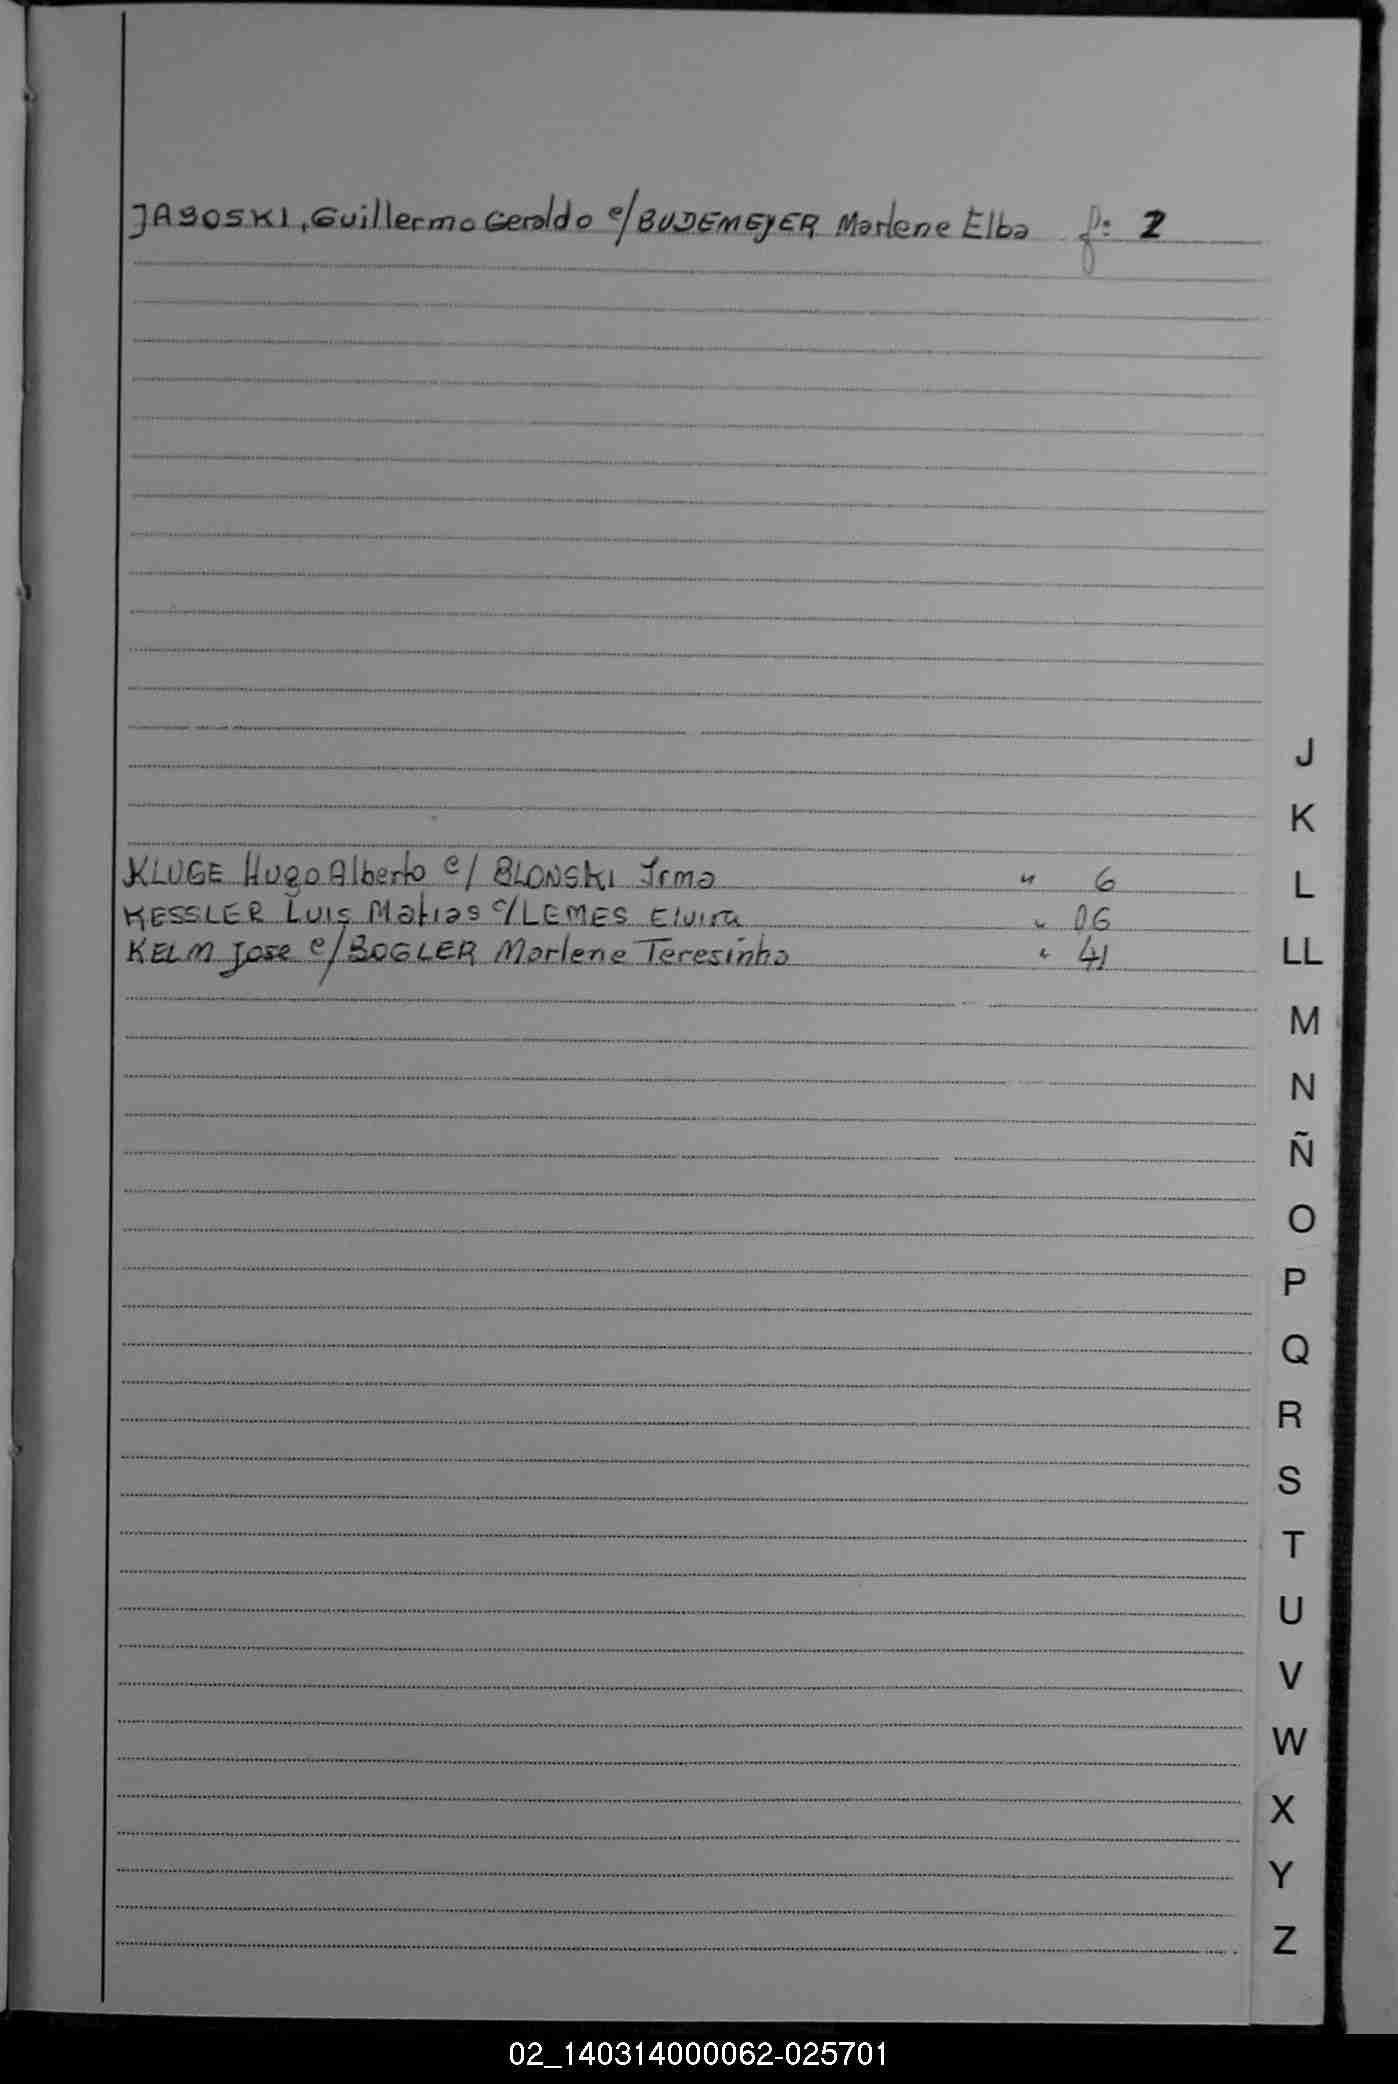 JAGOSKI, Guillermo Geraldo c/ BUDEMEYER Marlene Elba f: 2
J
K
KLUGE Hugo Alberto c/ BLONSKI Irma " 6
L
KESSLER Luis Matias c/ LEMES Elvira " 06
KELM Jose c/ BOGLER Marlene Teresinha " 41
LL
M
N
Ñ
O
P
Q
R
S
T
U
V
W
X
Y
Z
02_140314000062-025701